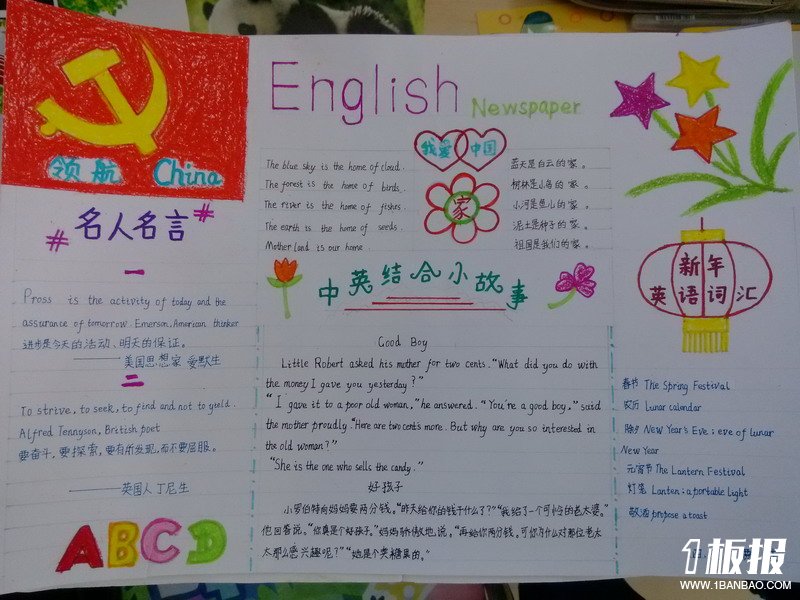 领航 China
# 名人名言 #
一
Pross is the activity of today and the
assurance of tomorrow. Emerson, American thinker
进步是今天的活动、明天的保证。
———美国思想家 爱默生
二
To strive, to seek, to find and not to yield.
Alfred Tennyson, British poet
要奋斗,要探索,要有所发现,而不要屈服。
———英国人丁尼生
ABCD
English Newspaper
我爱 中国
The blue sky is the home of cloud.
The forest is the home of birds.
The river is the home of fishes.
The earth is the home of seeds.
Mother land is our home.
家
蓝天是白云的家。
树林是小鸟的家。
小河是鱼儿的家。
泥土是种子的家。
祖国是我们的家。
中英结合小故事
Good Boy
Little Robert asked his mother for two cents. "What did you do with
the money I gave you yesterday?"
"I gave it to a poor old woman," he answered. "You're a good boy," said
the mother proudly. "Here are two cents more. But why are you so interested in
the old woman?"
"She is the one who sells the candy."
好孩子
小罗伯特向妈妈要两分钱。"昨天给你的钱干什么了?""我给了一个可怜的老太婆。"
他回答说。"你真是个好孩子。"妈妈骄傲地说。"再给你两分钱。可你为什么对那位老太
太那么感兴趣呢?""她是个卖糖果的。"
新年
英语词汇
春节 The Spring Festival
农历 Lunar calendar
除夕 New Year's Eve; eve of lunar
New Year
元宵节 The Lantern Festival
灯笼 Lanten; a portable light
敬酒 propose a toast
1板报
WWW.1BANBAO.COM